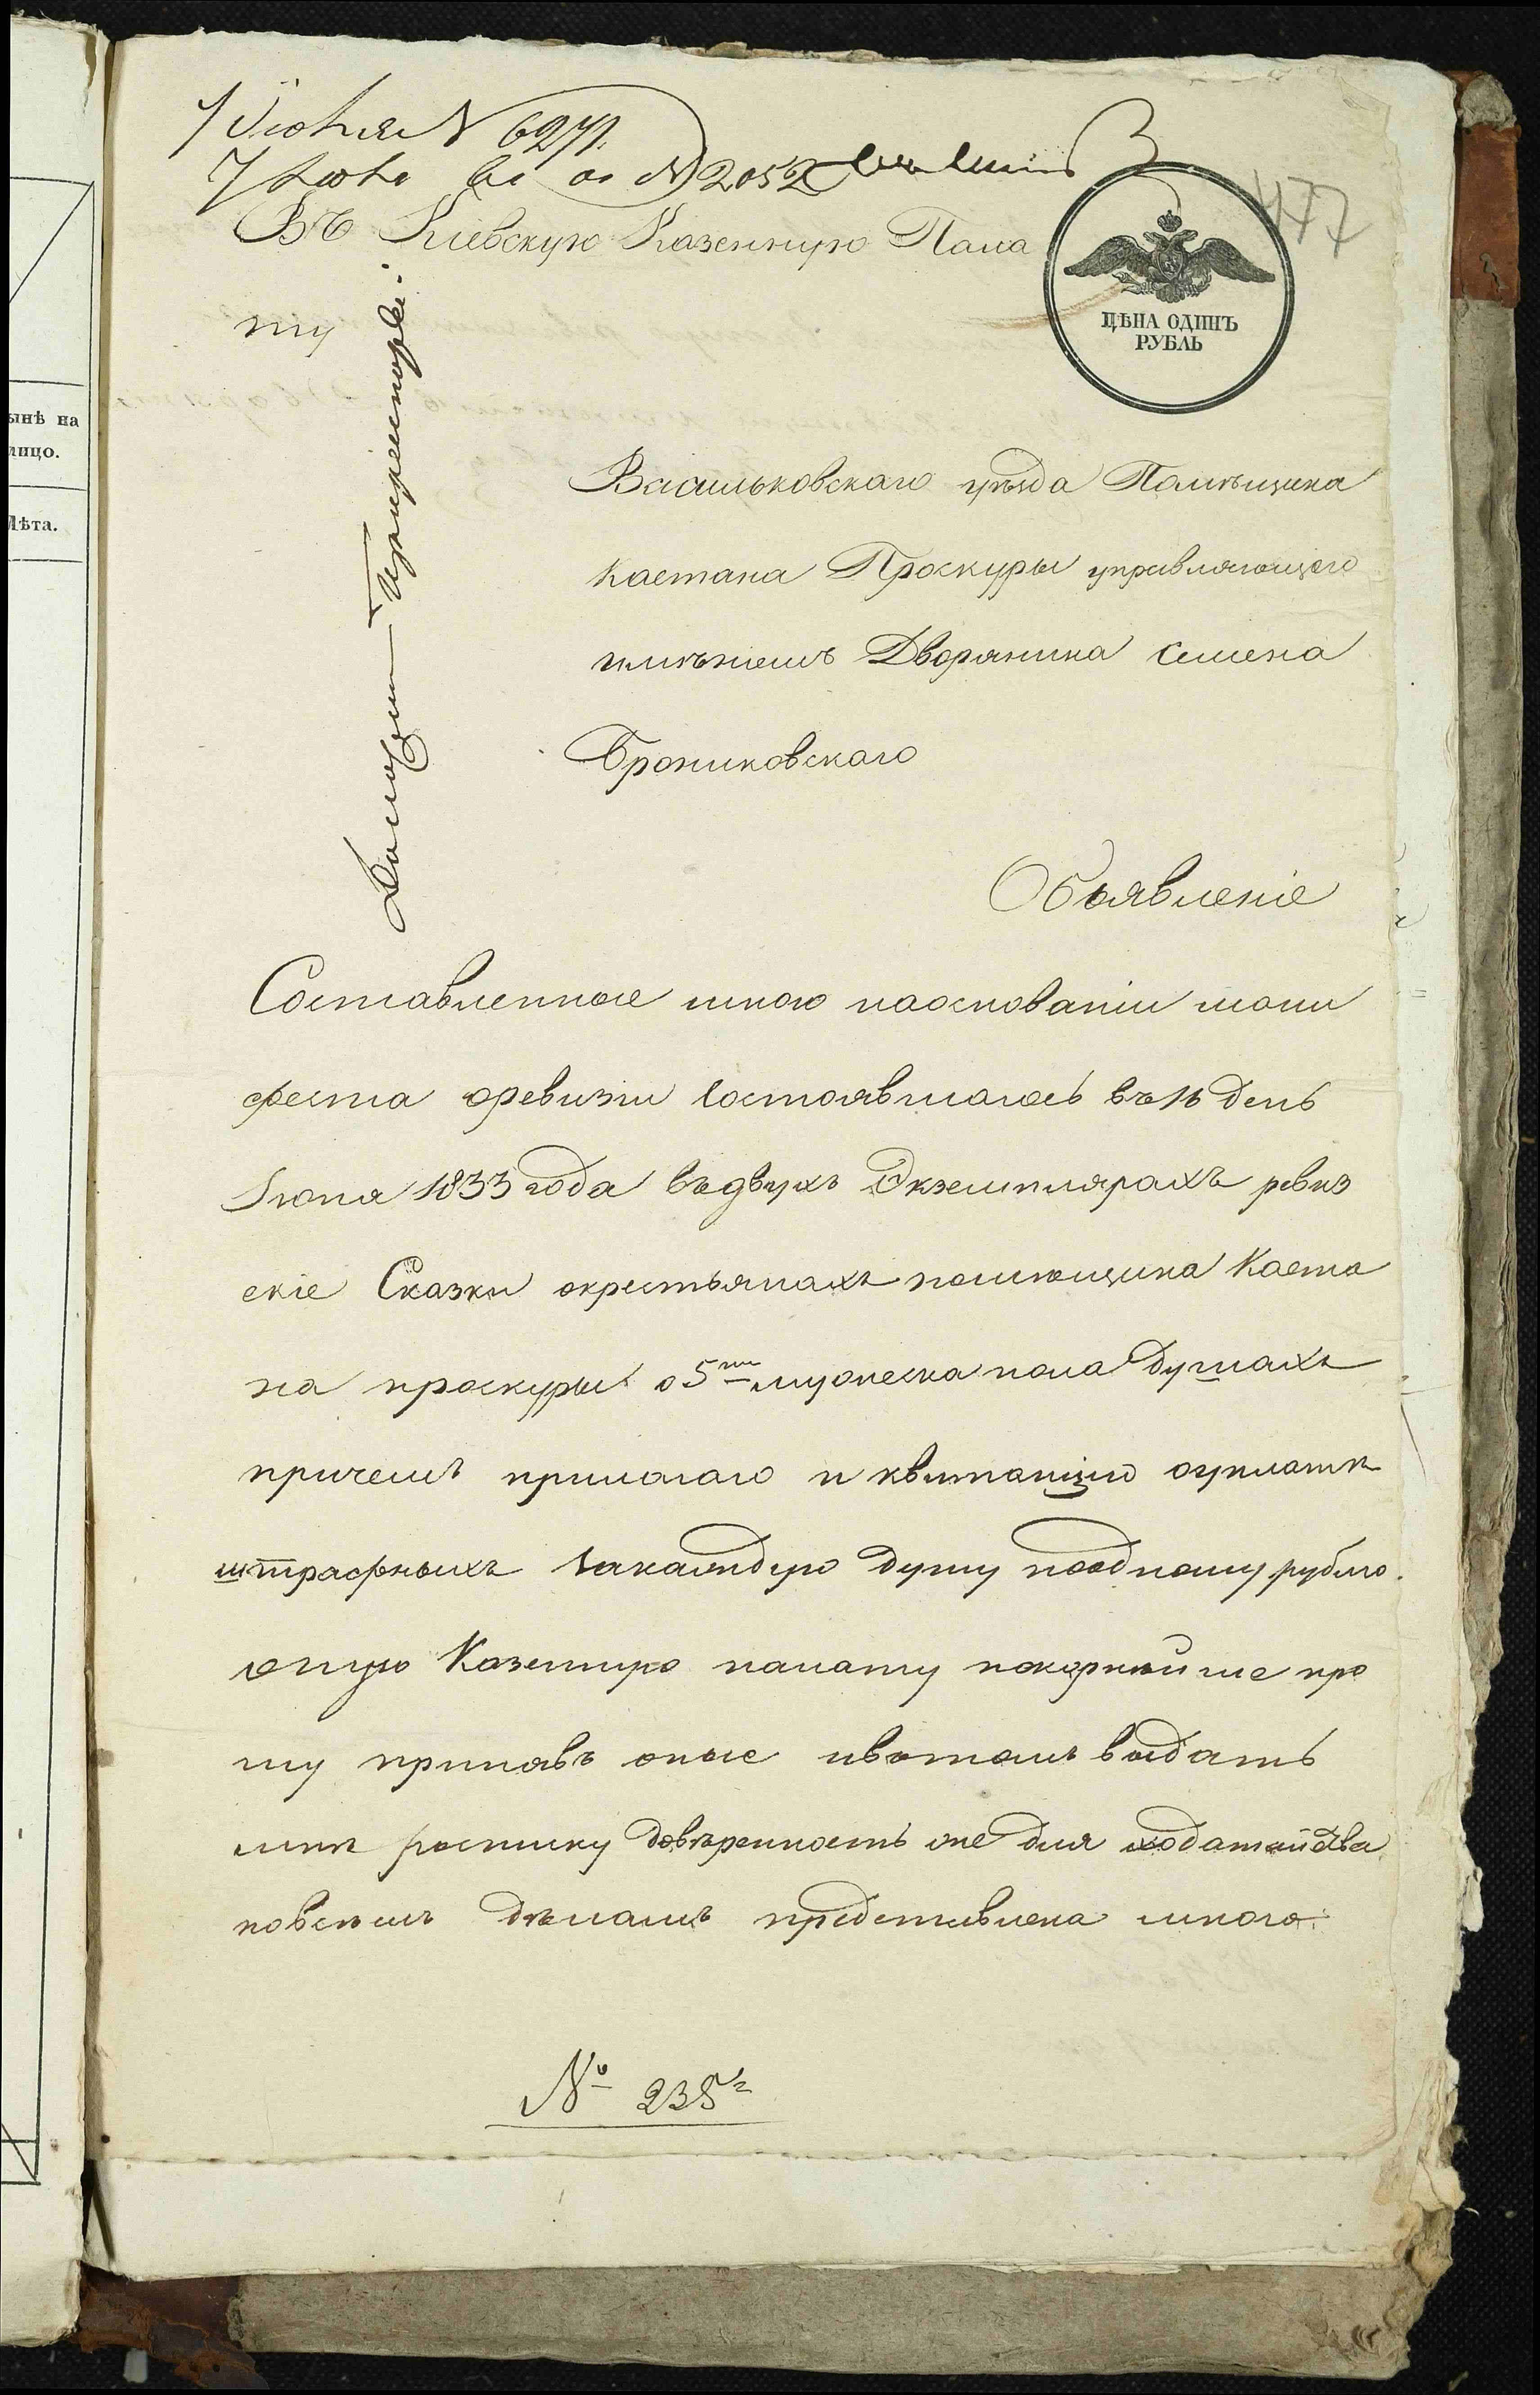 7 Іюня N 6271.
7 Іюня N 2052
477
Въ Кіевскую Казенную Пала
ту
ЦѢНА ОДИНЪ
РУБЛЬ
ынѣ на
лицо.
Лѣта.
Васильковскаго уѣзда Помѣщика
Каетана Проскуры управляющего
имѣніемъ Дворянина Семена
Брониковскаго
Объявленіе
Составленные мною наоснованіи мани
феста оревизіи состоявшагось въ 16 день
Іюня 1833 года въдвухъ Экземплярахъ ревиз
скіе Сказки окрестьянахъ помѣщика Каета
на проскуры о 5ти мужеска пола душахъ
причемъ прилагаю и квитанцію оуплатѣ
штрафныхъ закаждую душу поодному рублю.
оную Казенную палату покорнѣйше про
шу принявъ оные ивътомъ выдать
мнѣ росписку довѣренность же для ходатайства
повсѣмъ дѣламъ представлена мною.
№ 235